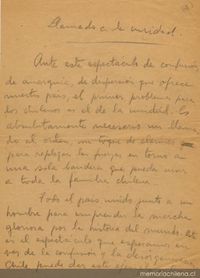 Llamado a la unidad
Ante este espectaculo de confusión
de anarquía, de dispersión que ofrece
nuestro país, el primer problema para
los chilenos es el de la unidad. Es
absolutamente necesario un llama-
do al orden, un toque de clarines
para replegar las fuerzas en torno a
una sola bandera que pueda unir
a toda la familia chilena
Todo el país unido junto a un
hombre para emprender la marcha
gloriosa por la historia del mundo. Tal
es el espectaculo que esperamos en
vez de la confusión y la desorganización
Chile puede dar este
memoriachilena.cl